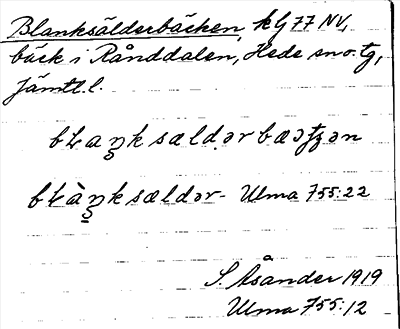 Blanksälderbäcken, kG 77 NV,
bäck i Rånddalen, Hede sn o. tg,
Jämtl. l.
bɫaŋksældərbæɔʈʂən
bɫàŋksældər- Ulma 755:22
S. Åsander 1919
Ulma 755:12